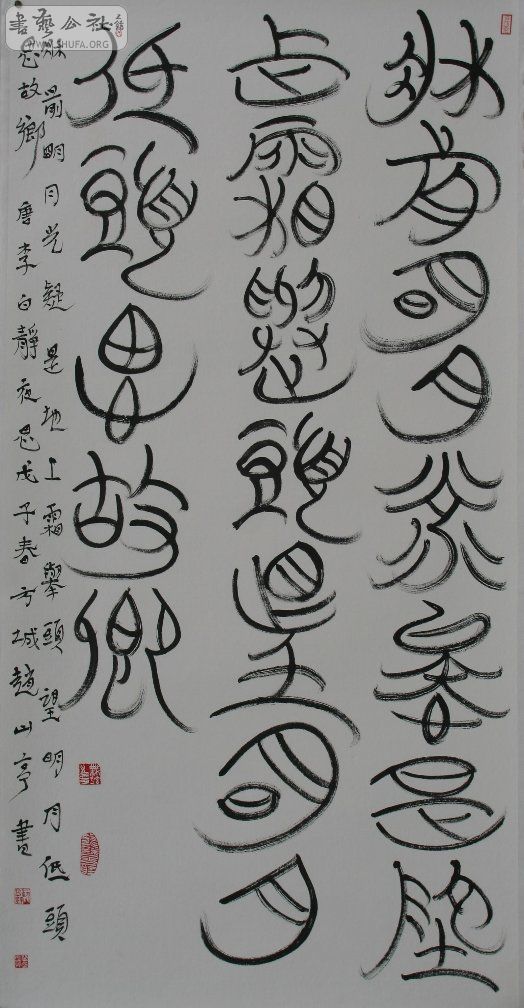 牀前明月光疑是地
上霜舉頭望明月
低頭思故鄉
牀前明月光疑是地上霜舉頭望明月低頭
思故鄉 唐李白靜夜思戊子春方城趙山亭書
書藝公社
WWW.SHUFA.ORG